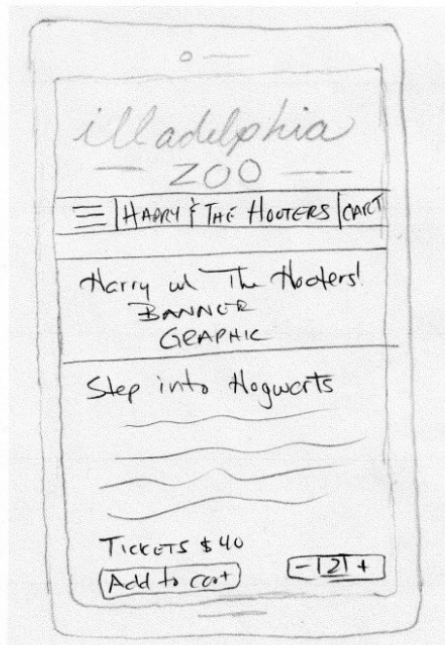 illadelphia
ZOO
HARRY & THE HOOTERS CART
Harry w/ The Hooters!
BANNER
GRAPHIC
Step into Hogwarts
TICKETS $40
Add to cart
- 2 +